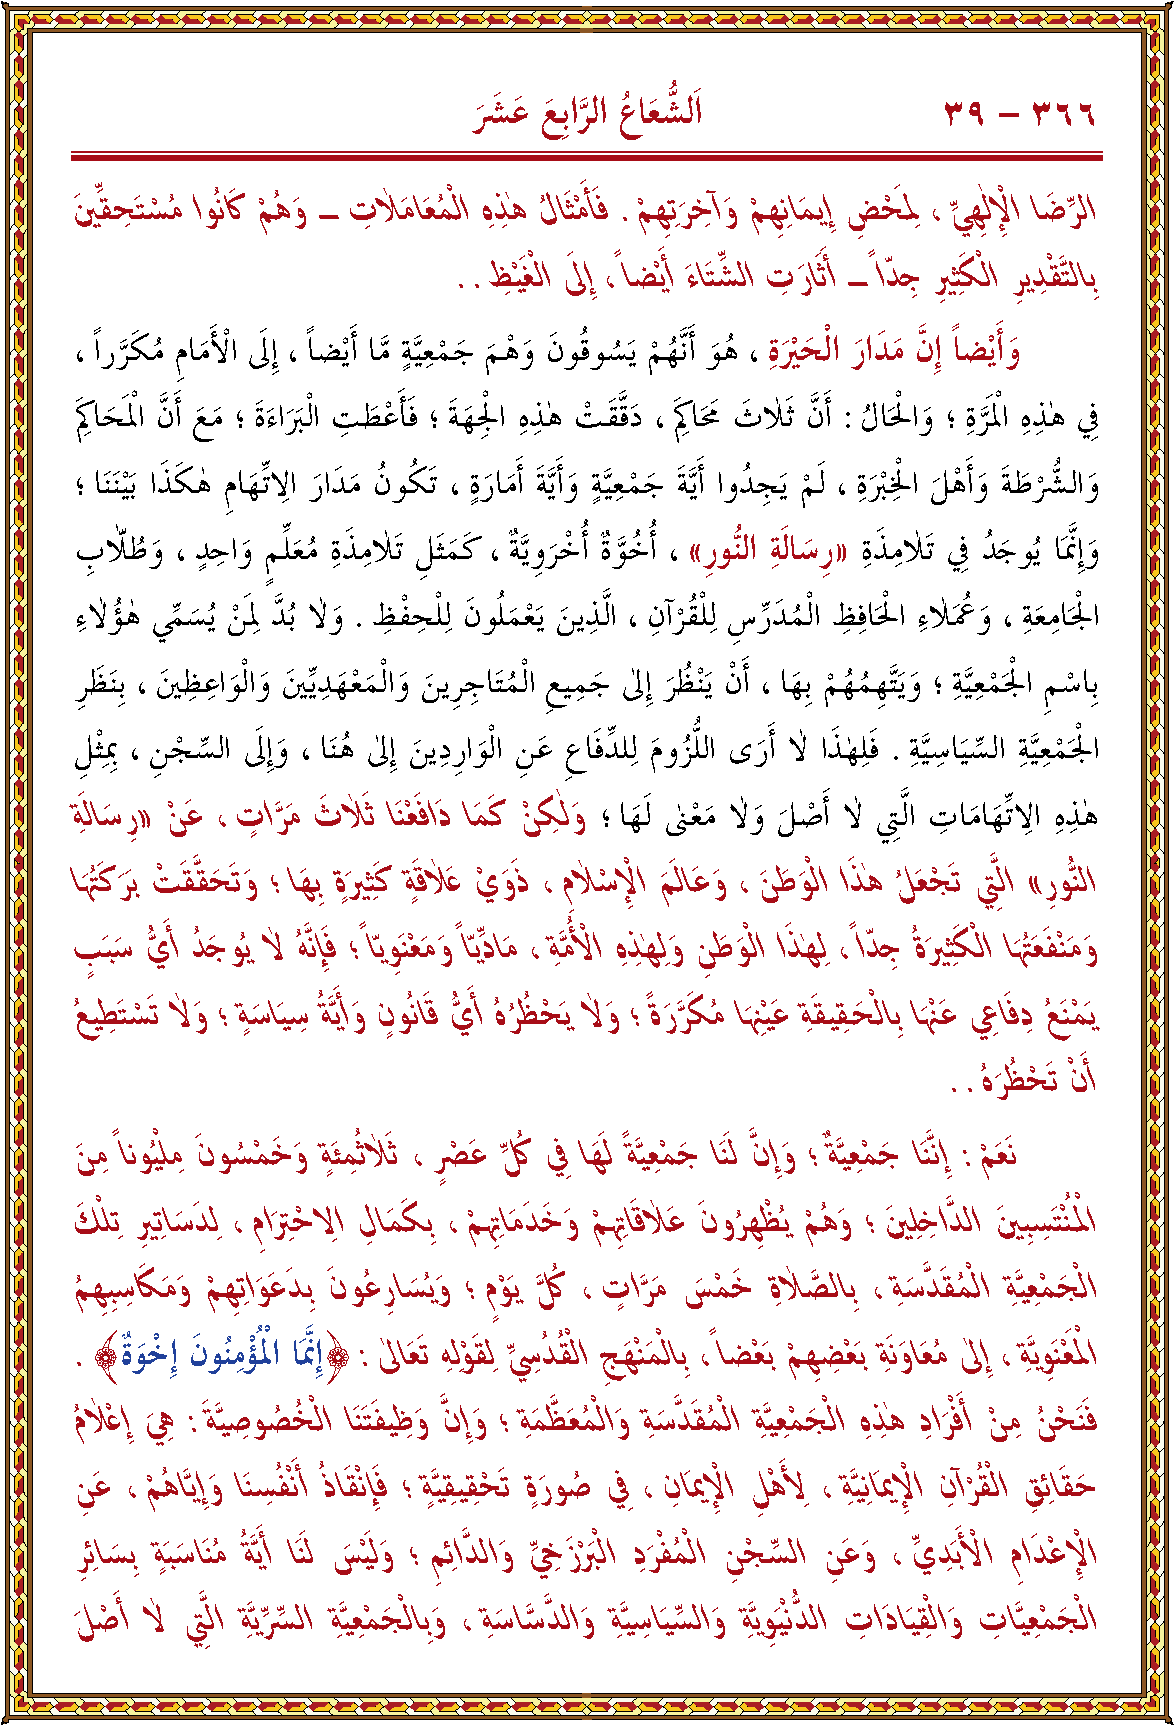 ٣٦٦ – ٣٩ اَلشُّعَاعُ الرَّابِعَ عَشَرَ
الرِّضَا الْإِلٰهِيِّ ، لِمَحْضِ إِيمَانِهِمْ وَآخِرَتِهِمْ . فَأَمْثَالُ هٰذِهِ الْمُعَامَلَاتِ – وَهُمْ كَانُوا مُسْتَحِقِّينَ
بِالتَّقْدِيرِ الْكَثِيرِ جِدّاً – أَثَارَتِ الشِّتَاءَ أَيْضاً ، إِلَى الْغَيْظِ . .
وَأَيْضاً إِنَّ مَدَارَ الْحَيْرَةِ ، هُوَ أَنَّهُمْ يَسُوقُونَ وَهْمَ جَمْعِيَّةٍ مَّا أَيْضاً ، إِلَى الْأَمَامِ مُكَرَّراً ،
فِي هٰذِهِ الْمَرَّةِ ؛ وَالْحَالُ : أَنَّ ثَلَاثَ مَحَاكِمَ ، دَقَّقَتْ هٰذِهِ الْجِهَةَ ؛ فَأَعْطَتِ الْبَرَاءَةَ ؛ مَعَ أَنَّ الْمَحَاكِمَ
وَالشُّرْطَةَ وَأَهْلَ الْخِبْرَةِ ، لَمْ يَجِدُوا أَيَّةَ جَمْعِيَّةٍ وَأَيَّةَ أَمَارَةٍ ، تَكُونُ مَدَارَ الِاتِّهَامِ هٰكَذَا بَيْنَنَا ؛
وَإِنَّمَا يُوجَدُ فِي تَلَامِذَةِ «رِسَالَةِ النُّورِ» ، أُخُوَّةٌ أُخْرَوِيَّةٌ ، كَمَثَلِ تَلَامِذَةِ مُعَلِّمٍ وَاحِدٍ ، وَطُلَّابِ
الْجَامِعَةِ ، وَعُمَلَاءِ الْحَافِظِ الْمُدَرِّسِ لِلْقُرْآنِ ، الَّذِينَ يَعْمَلُونَ لِلْحِفْظِ . وَلَا بُدَّ لِمَنْ يُسَمِّي هٰؤُلَاءِ
بِاسْمِ الْجَمْعِيَّةِ ؛ وَيَتَّهِمُهُمْ بِهَا ، أَنْ يَنْظُرَ إِلٰى جَمِيعِ الْمُتَاجِرِينَ وَالْمَعْهَدِيِّينَ وَالْوَاعِظِينَ ، بِنَظَرِ
الْجَمْعِيَّةِ السِّيَاسِيَّةِ . فَلِهٰذَا لَا أَرَى اللُّزُومَ لِلدِّفَاعِ عَنِ الْوَارِدِينَ إِلٰى هُنَا ، وَإِلَى السِّجْنِ ، بِمِثْلِ
هٰذِهِ الِاتِّهَامَاتِ الَّتِي لَا أَصْلَ وَلَا مَعْنٰى لَهَا ؛ وَلٰكِنْ كَمَا دَافَعْنَا ثَلَاثَ مَرَّاتٍ ، عَنْ «رِسَالَةِ
النُّورِ» الَّتِي تَجْعَلُ هٰذَا الْوَطَنَ ، وَعَالَمَ الْإِسْلَامِ ، ذَوَيْ عَلَاقَةٍ كَثِيرَةٍ بِهَا ؛ وَتَحَقَّقَتْ بَرَكَتُهَا
وَمَنْفَعَتُهَا الْكَثِيرَةُ جِدّاً ، لِهٰذَا الْوَطَنِ وَلِهٰذِهِ الْأُمَّةِ ، مَادِّيّاً وَمَعْنَوِيّاً ؛ فَإِنَّهُ لَا يُوجَدُ أَيُّ سَبَبٍ
يَمْنَعُ دِفَاعِي عَنْهَا بِالْحَقِيقَةِ عَيْنِهَا مُكَرَّرَةً ؛ وَلَا يَحْظُرُهُ أَيُّ قَانُونٍ وَأَيَّةُ سِيَاسَةٍ ؛ وَلَا تَسْتَطِيعُ
أَنْ تَحْظُرَهُ . .
نَعَمْ : إِنَّنَا جَمْعِيَّةٌ ؛ وَإِنَّ لَنَا جَمْعِيَّةً لَهَا فِي كُلِّ عَصْرٍ ، ثَلَاثُمِئَةٍ وَخَمْسُونَ مِلْيُوناً مِنَ
الْمُنْتَسِبِينَ الدَّاخِلِينَ ؛ وَهُمْ يُظْهِرُونَ عَلَاقَاتِهِمْ وَخَدَمَاتِهِمْ ، بِكَمَالِ الِاحْتِرَامِ ، لِدَسَاتِيرِ تِلْكَ
الْجَمْعِيَّةِ الْمُقَدَّسَةِ ، بِالصَّلَاةِ خَمْسَ مَرَّاتٍ ، كُلَّ يَوْمٍ ؛ وَيُسَارِعُونَ بِدَعَوَاتِهِمْ وَمَكَاسِبِهِمُ
الْمَعْنَوِيَّةِ ، إِلٰى مُعَاوَنَةِ بَعْضِهِمْ بَعْضاً ، بِالْمَنْهَجِ الْقُدُسِيِّ لِقَوْلِهِ تَعَالٰى : ﴿إِنَّمَا الْمُؤْمِنُونَ إِخْوَةٌ﴾ .
فَنَحْنُ مِنْ أَفْرَادِ هٰذِهِ الْجَمْعِيَّةِ الْمُقَدَّسَةِ وَالْمُعَظَّمَةِ ؛ وَإِنَّ وَظِيفَتَنَا الْخُصُوصِيَّةَ : هِيَ إِعْلَامُ
حَقَائِقِ الْقُرْآنِ الْإِيمَانِيَّةِ ، لِأَهْلِ الْإِيمَانِ ، فِي صُورَةٍ تَحْقِيقِيَّةٍ ؛ فَإِنْقَاذُ أَنْفُسِنَا وَإِيَّاهُمْ ، عَنِ
الْإِعْدَامِ الْأَبَدِيِّ ، وَعَنِ السِّجْنِ الْمُفْرَدِ الْبَرْزَخِيِّ وَالدَّائِمِ ؛ وَلَيْسَ لَنَا أَيَّةُ مُنَاسَبَةٍ بِسَائِرِ
الْجَمْعِيَّاتِ وَالْقِيَادَاتِ الدُّنْيَوِيَّةِ وَالسِّيَاسِيَّةِ وَالدَّسَّاسَةِ ، وَبِالْجَمْعِيَّةِ السِّرِّيَّةِ الَّتِي لَا أَصْلَ